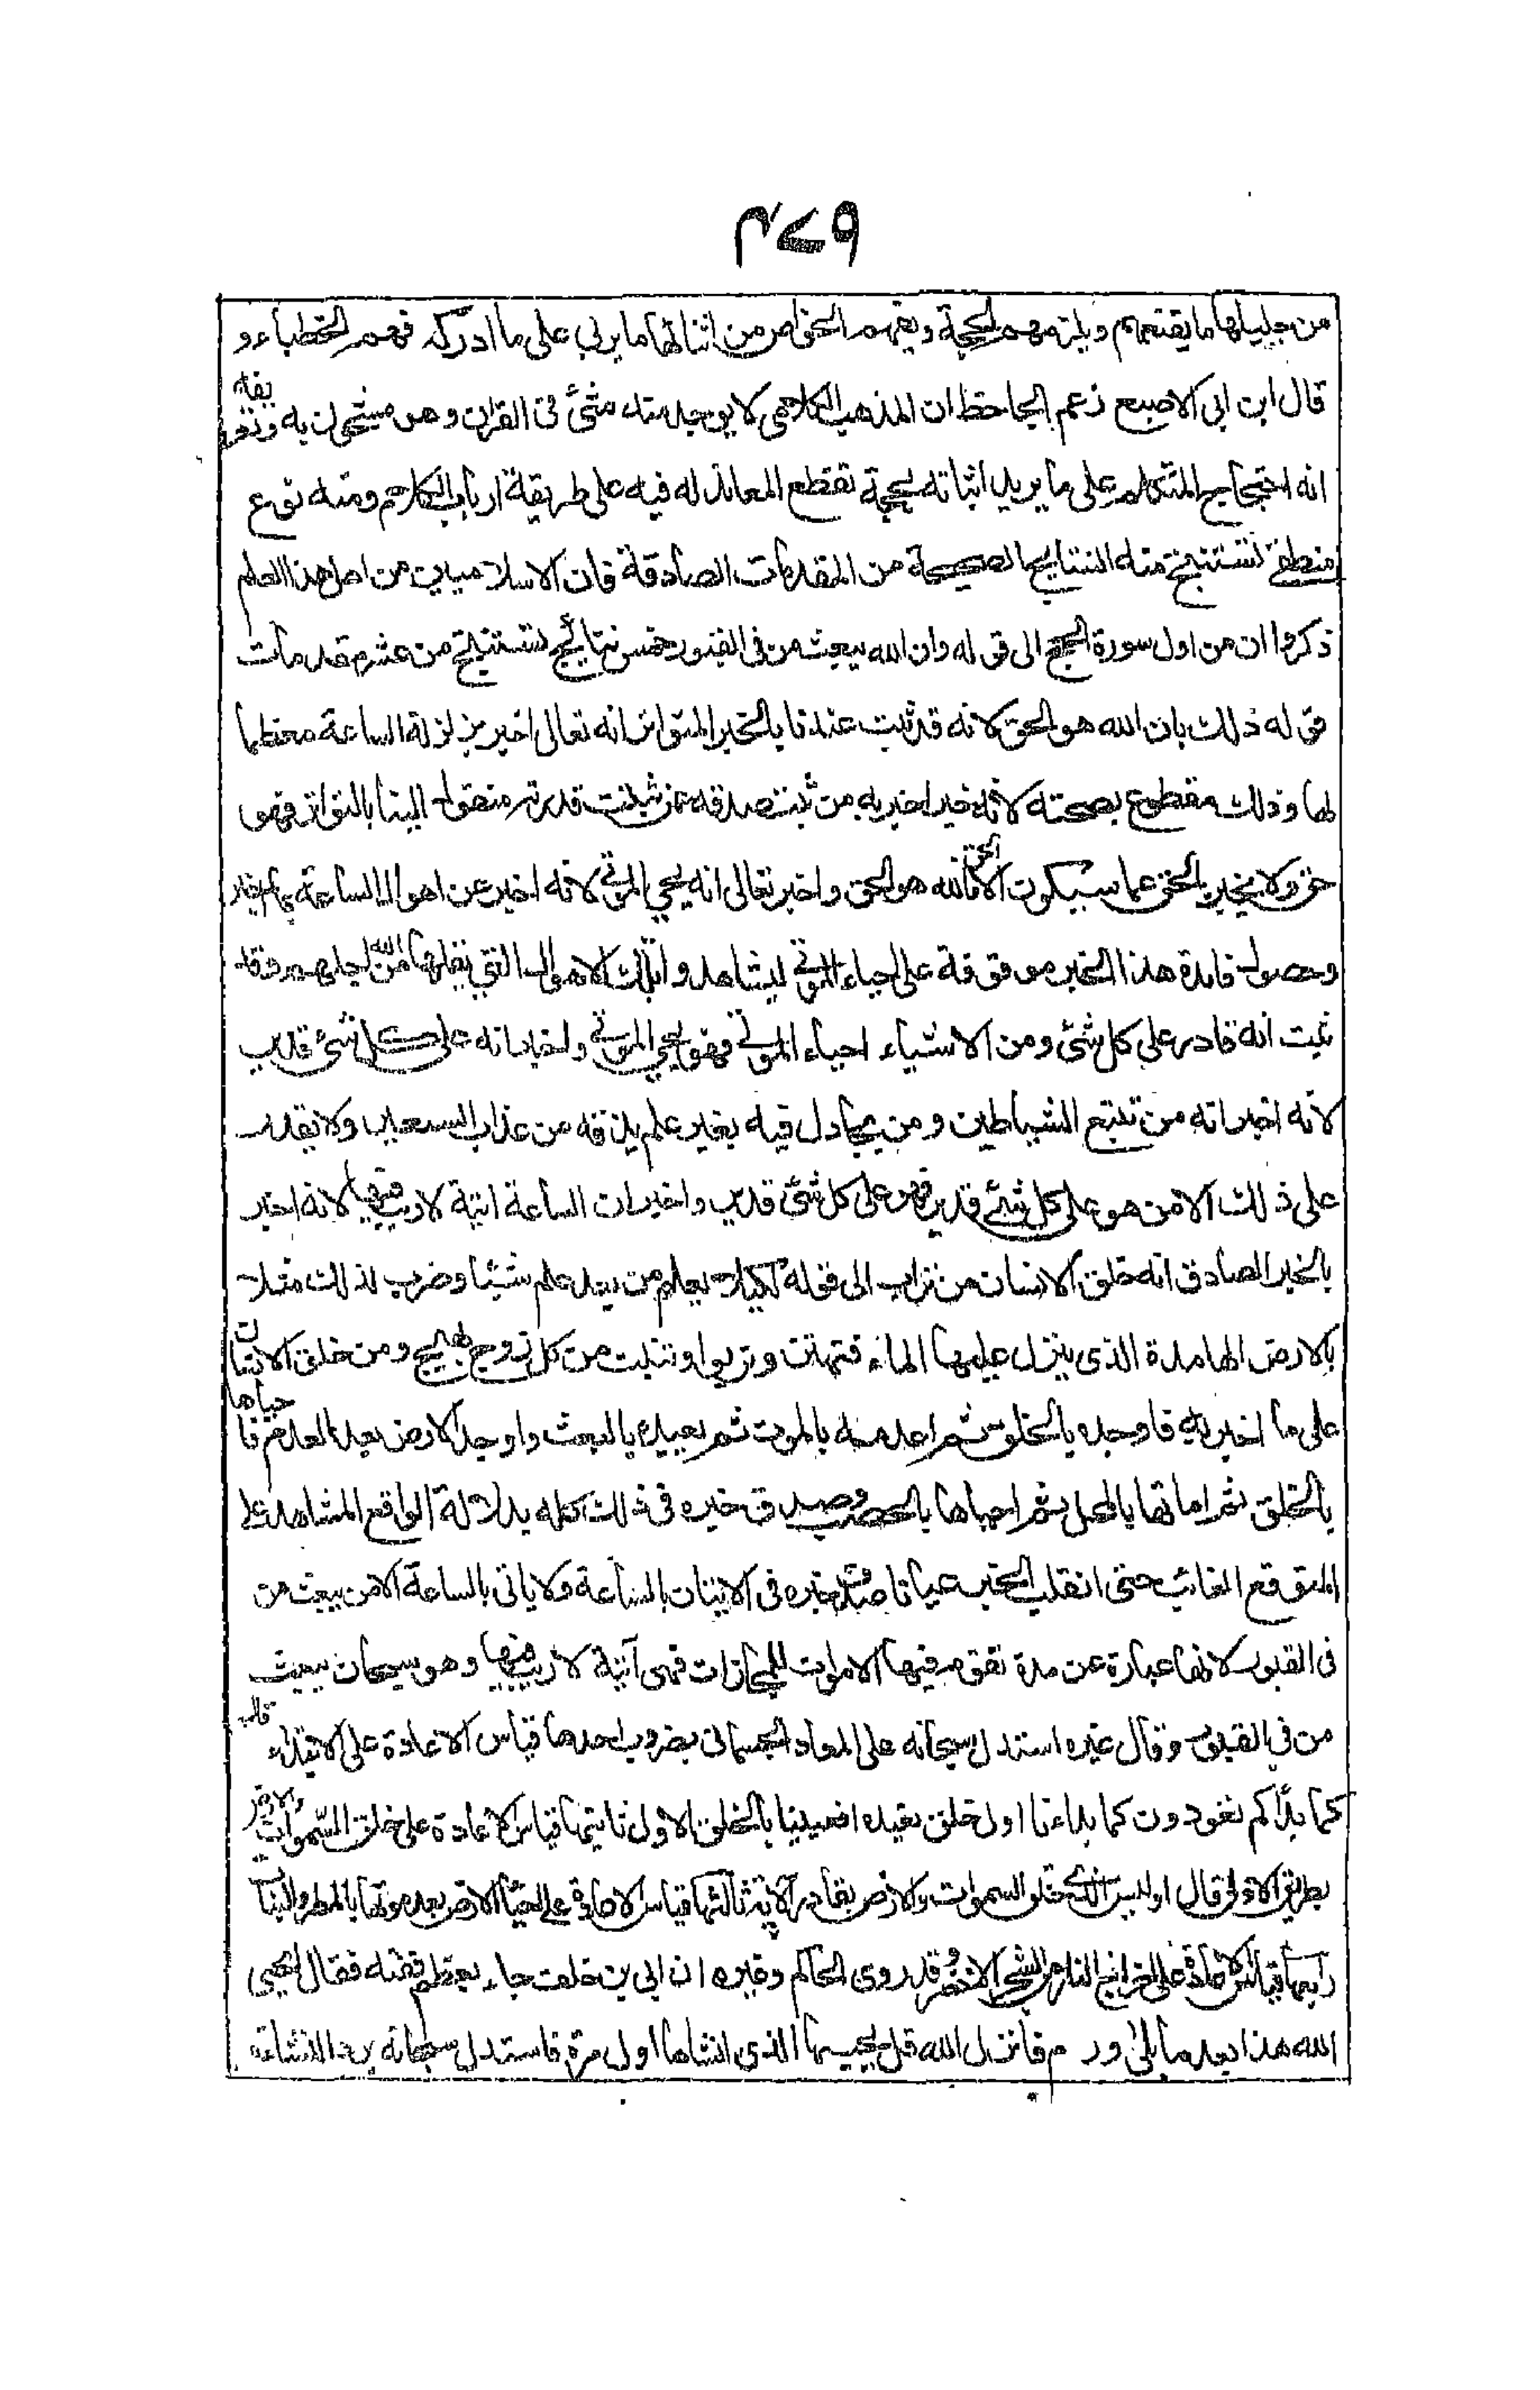 ٤٧٩
من جليلها ما يقنعهم ويلزمهم الحجة ويفهم الخواص من اثنائها ما يربي على ما ادركه فهم الخطباء و
قال ابن ابي الاصبع زعم الجاحظ ان المذهب الكلامي لا يوجد منه شئ في القران وهو مشحون به وتعريفه
انه احتجاج المتكلم على ما يريد اثباته بحجة تقطع المعاند له فيه على طريقة ارباب الكلام ومنه نوع
منطقي تستنتج منه النتايج الصحيحة من المقدمات الصادقة فان الاسلاميين من اهل هذا العلم
ذكروا ان من اول سورة الحج الى قوله وان الله يبعث من في القبور خمس نتائج تستنتج من عشر مقدمات
قوله ذلك بان الله هو الحق لانه قد ثبت عندنا بالخبر المتواتر انه تعالى اخبر بزلزلة الساعة معظما
لها وذلك مقطوع بصحته لانه خبر اخبر به من ثبت صدقه عمن ثبتت قدرته منقول الينا بالتواتر فهو
حق ولا يخبر بالحق عما سيكون الا الحق فالله هو الحق واخبر تعالى انه يحيي الموتى لانه اخبر عن اهوال الساعة بما اخبر
وحصول فايدة هذا الخبر موقوفة على احياء الموتى ليشاهدوا تلك الاهوال التي يفعلها الله من اجلهم وقد
ثبت انه قادر على كل شئ ومن الاشياء احياء الموتى فهو يحيي الموتى واخبر انه على كل شئ قدير
لانه اخبر انه من تتبع الشياطين ومن يجادل فيه بغير علم يذقه من عذاب السعير ولا يقدر
على ذلك الا من هو على كل شئ قدير فهو على كل شئ قدير واخبر ان الساعة اتية لا ريب فيها لانه اخبر
بالخبر الصادق انه خلق الانسان من تراب الى قوله لكيلا يعلم من بعد علم شيئا وضرب لذلك مثلا
بالارض الهامدة الذي ينزل عليها الماء فتهتز وتربو او تنبت من كل زوج بهيج ومن خلق الانسان
على ما اخبر به فاوجده بالخلق ثم اعدمه بالموت ثم يعيده بالبعث واوجد الارض بعد العدم فاحياها
بالخلق ثم اماتها بالمحل ثم احياها بالخصب وصدق خبره في ذلك كله بدلالة الواقع المشاهد على
المتوقع الغائب حتى انقلب الخبر عيانا صدق خبره في الاتيان بالساعة ولا ياتي بالساعة الا من يبعث من
في القبور لانها عبارة عن مدة تقوم فيها الاموات للمجازات فهي آتية لا ريب فيها وهو سبحان يبعث
من في القبور وقال غيره استدل سبحانه على المعاد الجسماني بضروب احدها قياس الاعادة على الابتداء قال
كما بدأكم تعودون كما بداءنا اول خلق نعيده افعيينا بالخلق الاول ثانيها قياس الاعادة على خلق السموات والارض
بطريق الاولى قال اوليس الذي خلق السموات والارض بقادر الآية ثالثها قياس الاعادة على احياء الارض بعد موتها بالمطر والنبات
رابعها قياس الاعادة على اخراج النار من الشجر الاخضر وقد روى الحاكم وغيره ان ابي بن خلف جاء بعظم ففته فقال ايحيي
الله هذا بعد ما بلى ورم فانزل الله قل يحييها الذي انشاها اول مرة فاستدل سبحانه برد النشاة